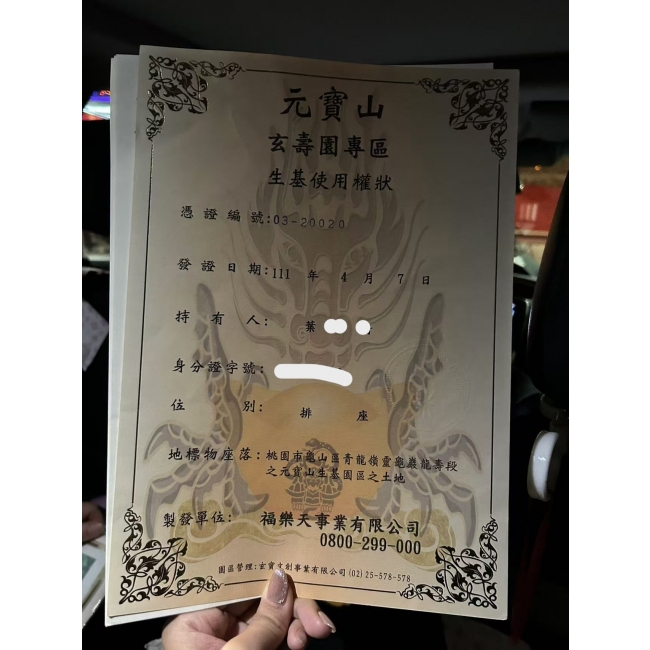 元寶山
玄壽園專區
生基使用權狀
憑證編號:03-20020
發證日期:111 年 4 月 7 日
持有人: 葉
身分證字號:
位別: 排 座
地標物座落:桃園市龜山區青龍嶺靈龜巖龍壽段
之元寶山生基園區之土地
製發單位: 福樂天事業有限公司
0800-299-000
園區管理:玄寶文創事業有限公司(02)25-578-578